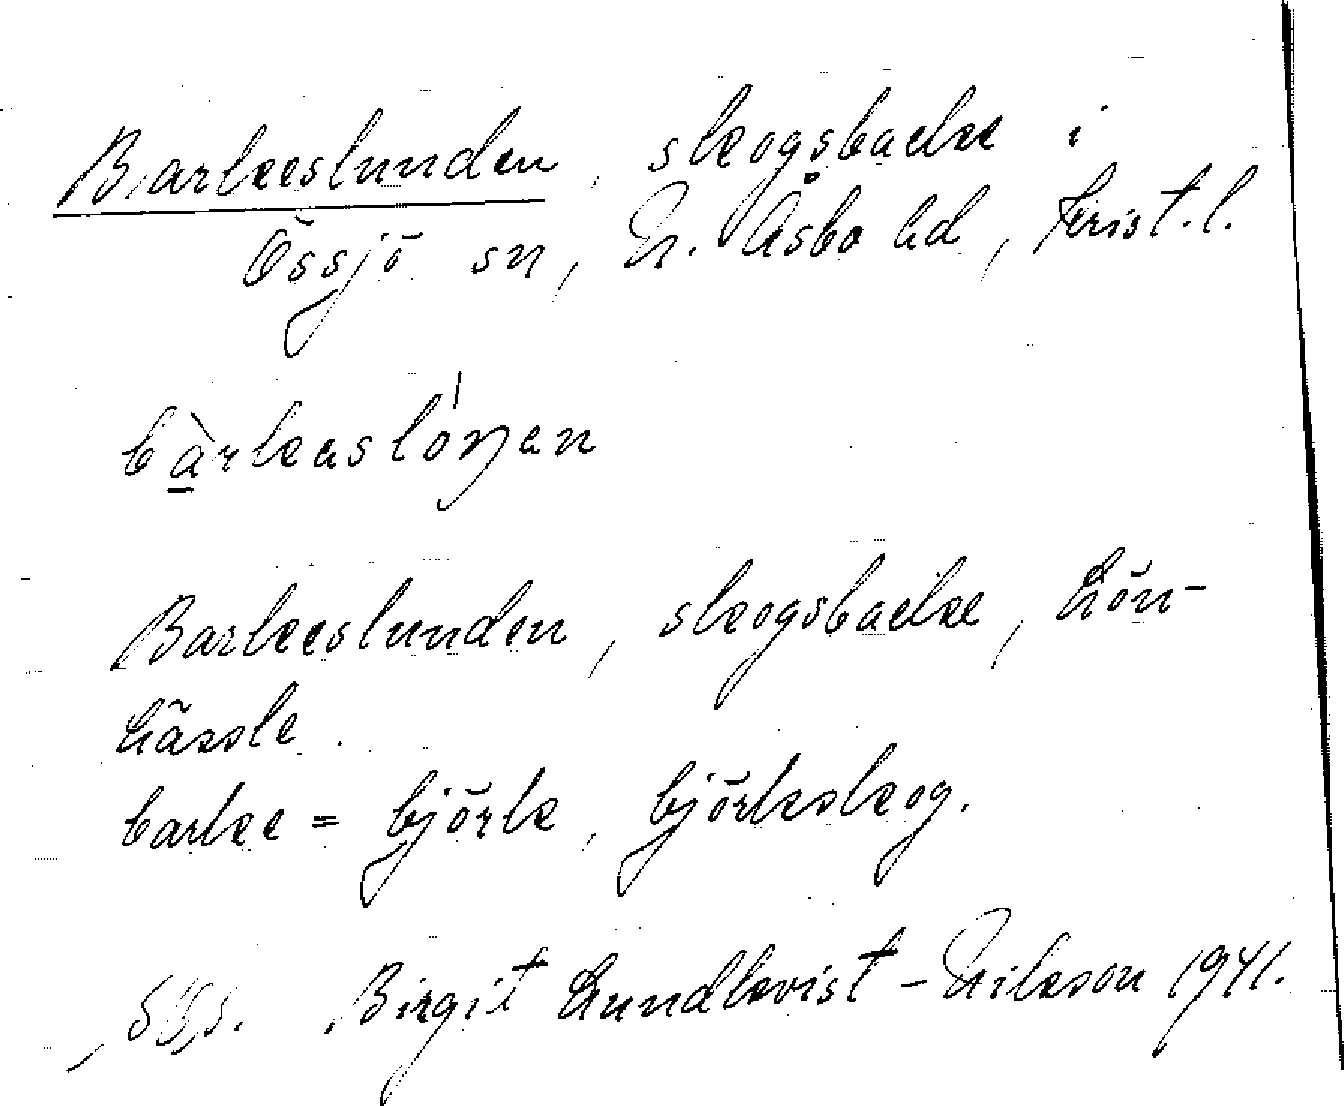 Barkeslunden, skogsbacke i
Össjö sn, N. Åsbo hd, Krist. l.
bàrkaslóŋan
Barkeslunden, skogsbacke, Lön-
hässle.
barke = björk, björkskog.
Birgit Lundkvist-Nilsson 1941.